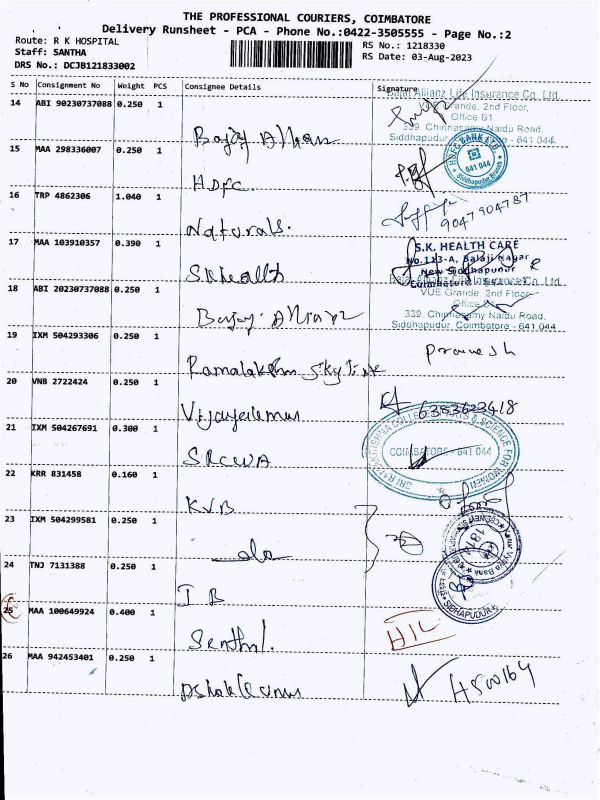 THE PROFESSIONAL COURIERS, COIMBATORE
Delivery Runsheet - PCA - Phone No.:0422-3505555 - Page No.:2
Route: R K HOSPITAL
Staff: SANTHA
DRS No.: DCJB121833002
RS No.: 1218330
RS Date: 03-Aug-2023
S No Consignment No Weight PCS Consignee Details Signature
14 ABI 90230737088 0.250 1 Bajaj Allianz
Bajaj Allianz Life Insurance Co. Ltd.
VUE Grande, 2nd Floor,
Office B1
339, Chinnasamy Naidu Road,
Siddhapudur, Coimbatore - 641 044.
15 MAA 298336007 0.250 1 HDFC.
HDFC BANK LTD
641 044
Siddhapudur Branch
16 TRP 4862306 1.040 1 Naturals.
9047904787
17 MAA 103910357 0.390 1 SK health
S.K. HEALTH CARE
No.113-A, Balaji Nagar
New Siddhapudur
Coimbatore
18 ABI 20230737088 0.250 1 Bajaj Allianz
Bajaj Allianz Life Insurance Co. Ltd
VUE Grande, 2nd Floor
Office B1
339, Chinnasamy Naidu Road,
Siddhapudur, Coimbatore - 641 044
19 IXM 504293306 0.250 1 Ramalakshmi Skyline
Pravesh
20 VNB 2722424 0.250 1
6383623418
21 IXM 504267691 0.300 1 SRCWA
SRI RAMAKRISHNA COLLEGE OF ARTS & SCIENCE FOR WOMEN
COIMBATORE - 641 044
22 KRR 831458 0.160 1 KVB
23 IXM 504299581 0.250 1 do
Karur Vysya Bank
24 TNJ 7131388 0.250 1 IB
SIDHAPUDUR
25 MAA 100649924 0.400 1 Senthil.
H1L
26 MAA 942453401 0.250 1